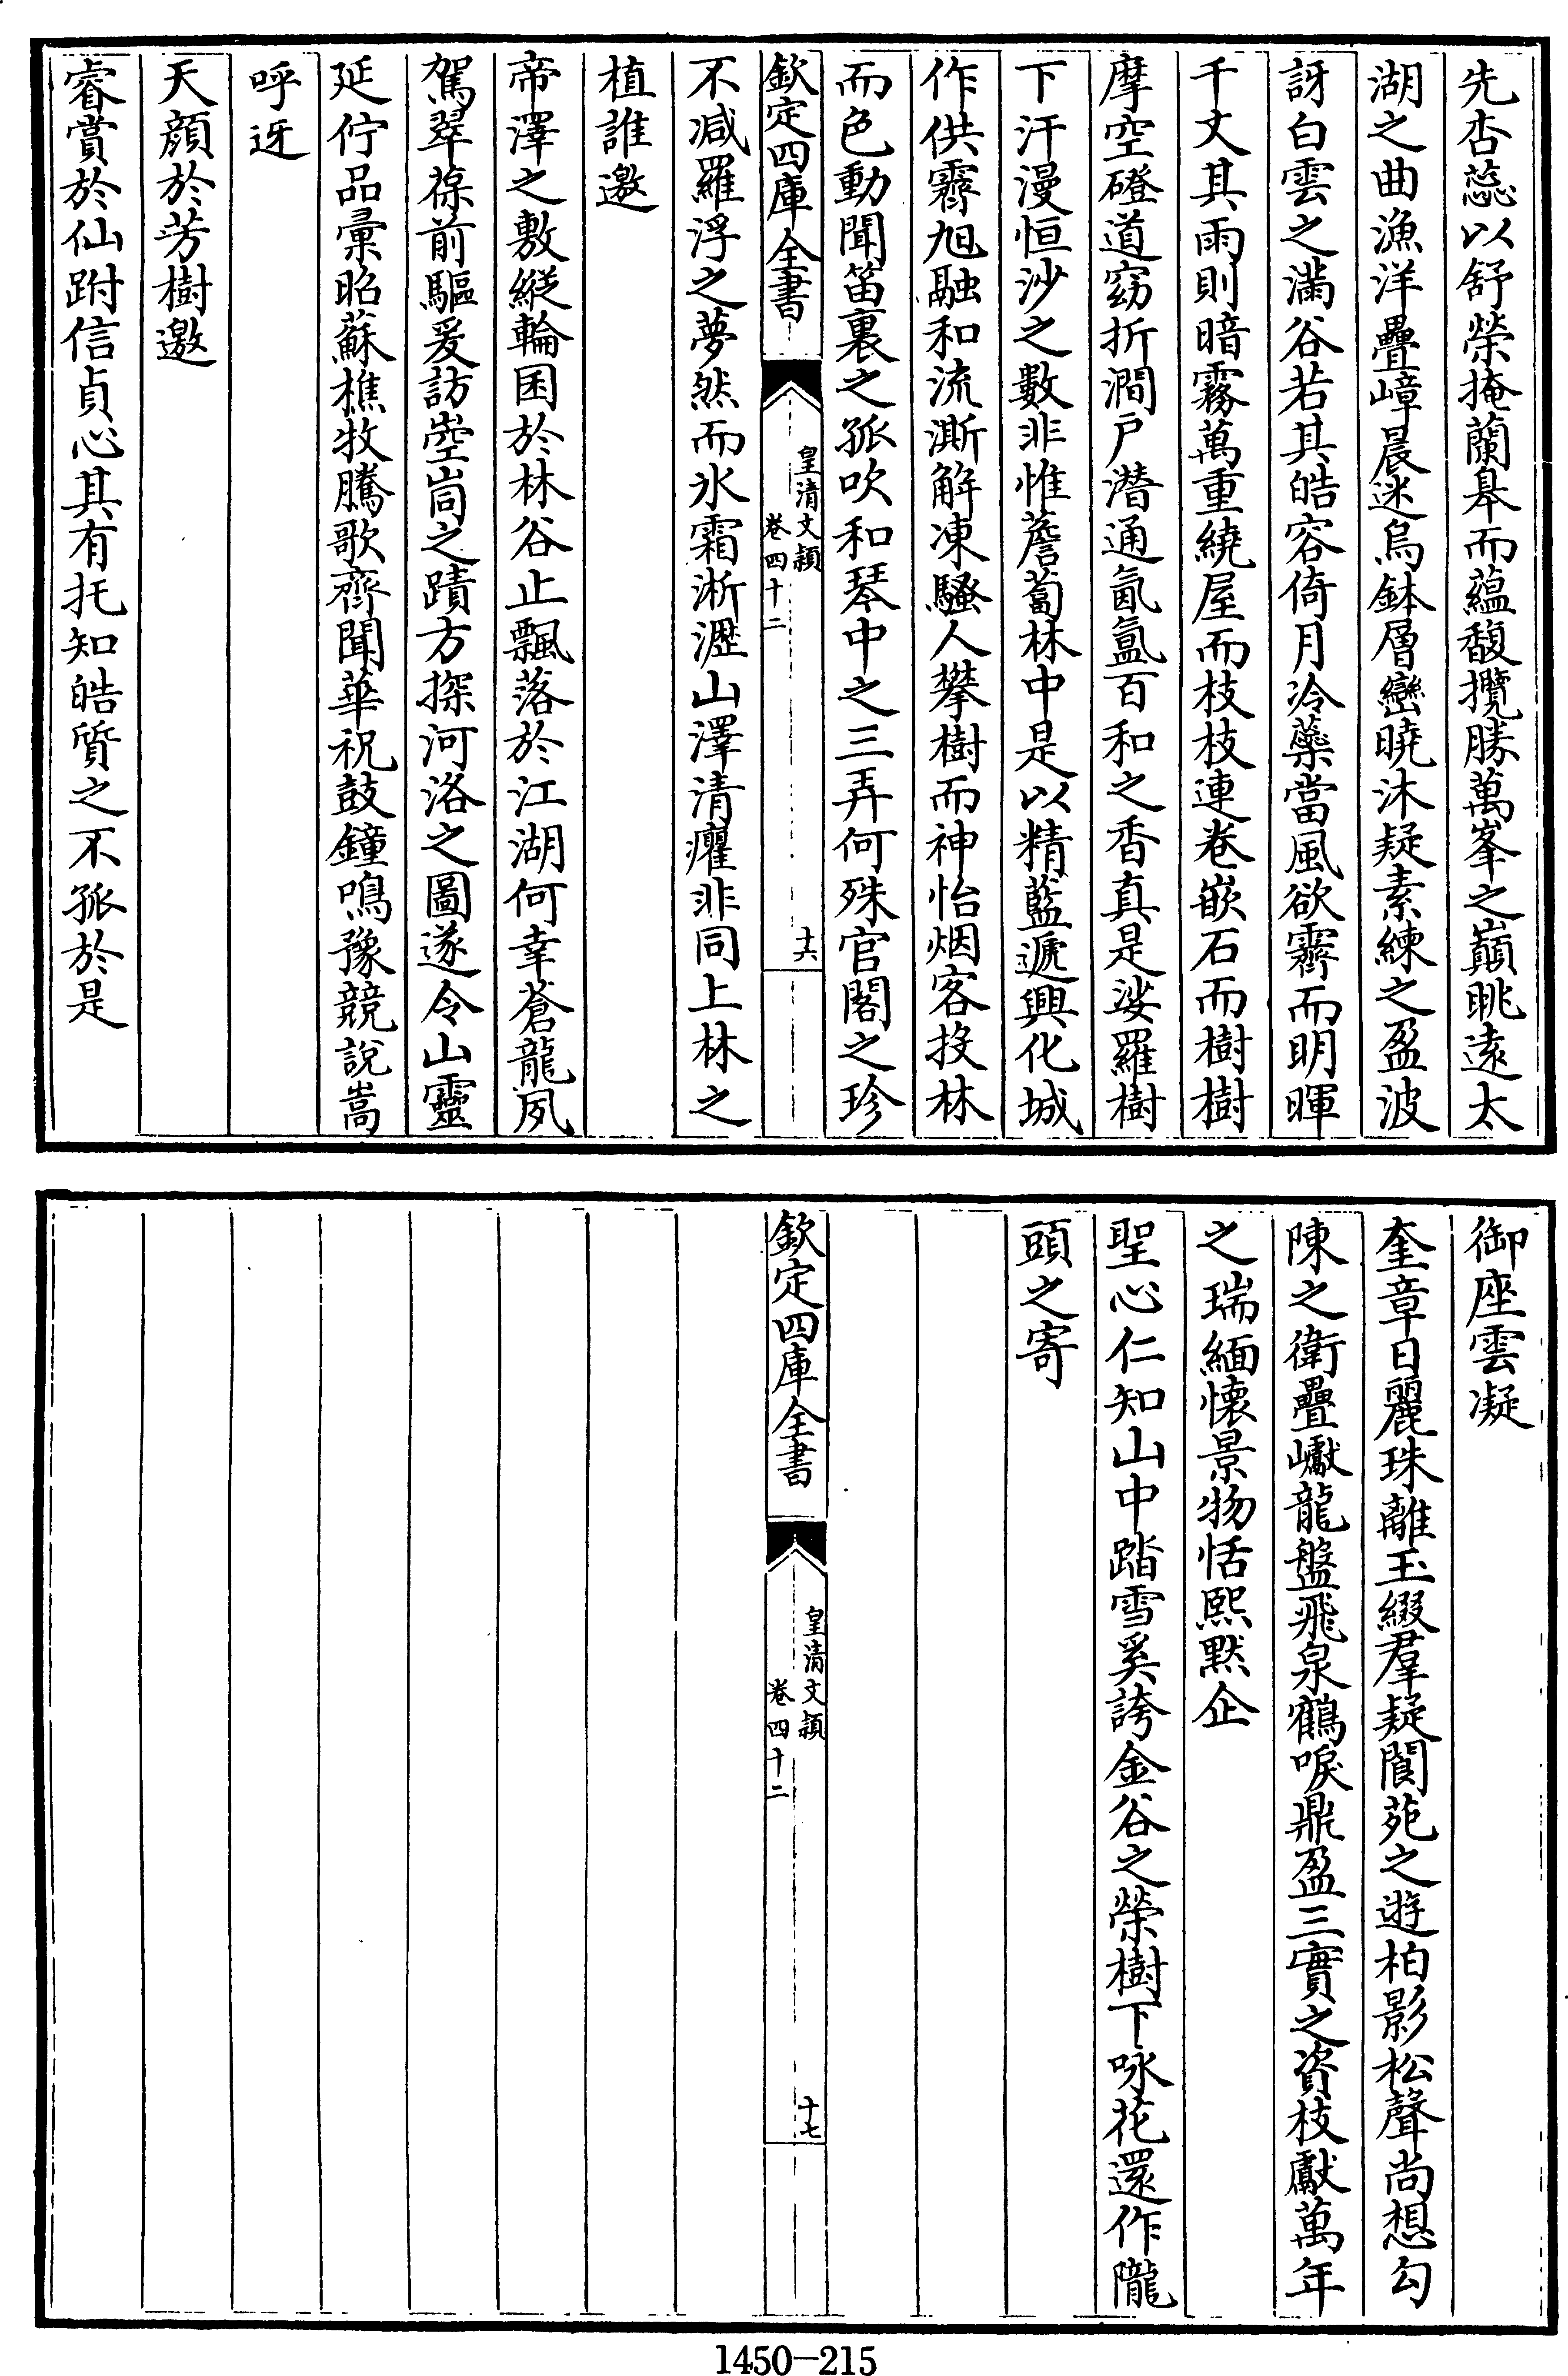 先杏蕊以舒榮掩蘭皋而蘊馥攬勝萬峯之巔眺遠太
湖之曲漁洋疊嶂晨迷烏鉢層巒曉沐疑素練之盈波
訝白雲之滿谷若其皓容倚月冷蘂當風欲霽而明暉
千丈其雨則暗霧萬重繞屋而枝枝連卷嵌石而樹樹
摩空磴道窈折澗戶潜通氤氳百和之香真是娑羅樹
下汗漫恒沙之數非惟薝蔔林中是以精藍遞興化城
作供霽旭融和流澌解凍騷人攀樹而神怡烟客投林
而色動聞笛裏之孤吹和琴中之三弄何殊官閣之珍
欽定四庫全書
皇清文穎
卷四十二
十六
不减羅浮之夢然而氷霜淅瀝山澤清癯非同上林之
植誰邀
帝澤之敷縱輪囷於林谷止飄落於江湖何幸蒼龍夙
駕翠葆前驅爰訪崆峒之蹟方探河洛之圖遂令山靈
延佇品彚昭蘇樵牧騰歌齊聞華祝鼓鐘鳴豫競說嵩
呼迓
天顔於芳樹邀
睿賞於仙跗信貞心其有托知皓質之不孤於是
御座雲凝
奎章日麗珠離玉綴羣疑閬苑之遊柏影松聲尚想勾
陳之衛疊巘龍盤飛泉鶴唳鼎盈三實之資枝獻萬年
之瑞緬懷景物恬熙默企
聖心仁知山中踏雪奚誇金谷之榮樹下咏花還作隴
頭之寄
欽定四庫全書
皇清文穎
卷四十二
十七
1450-215